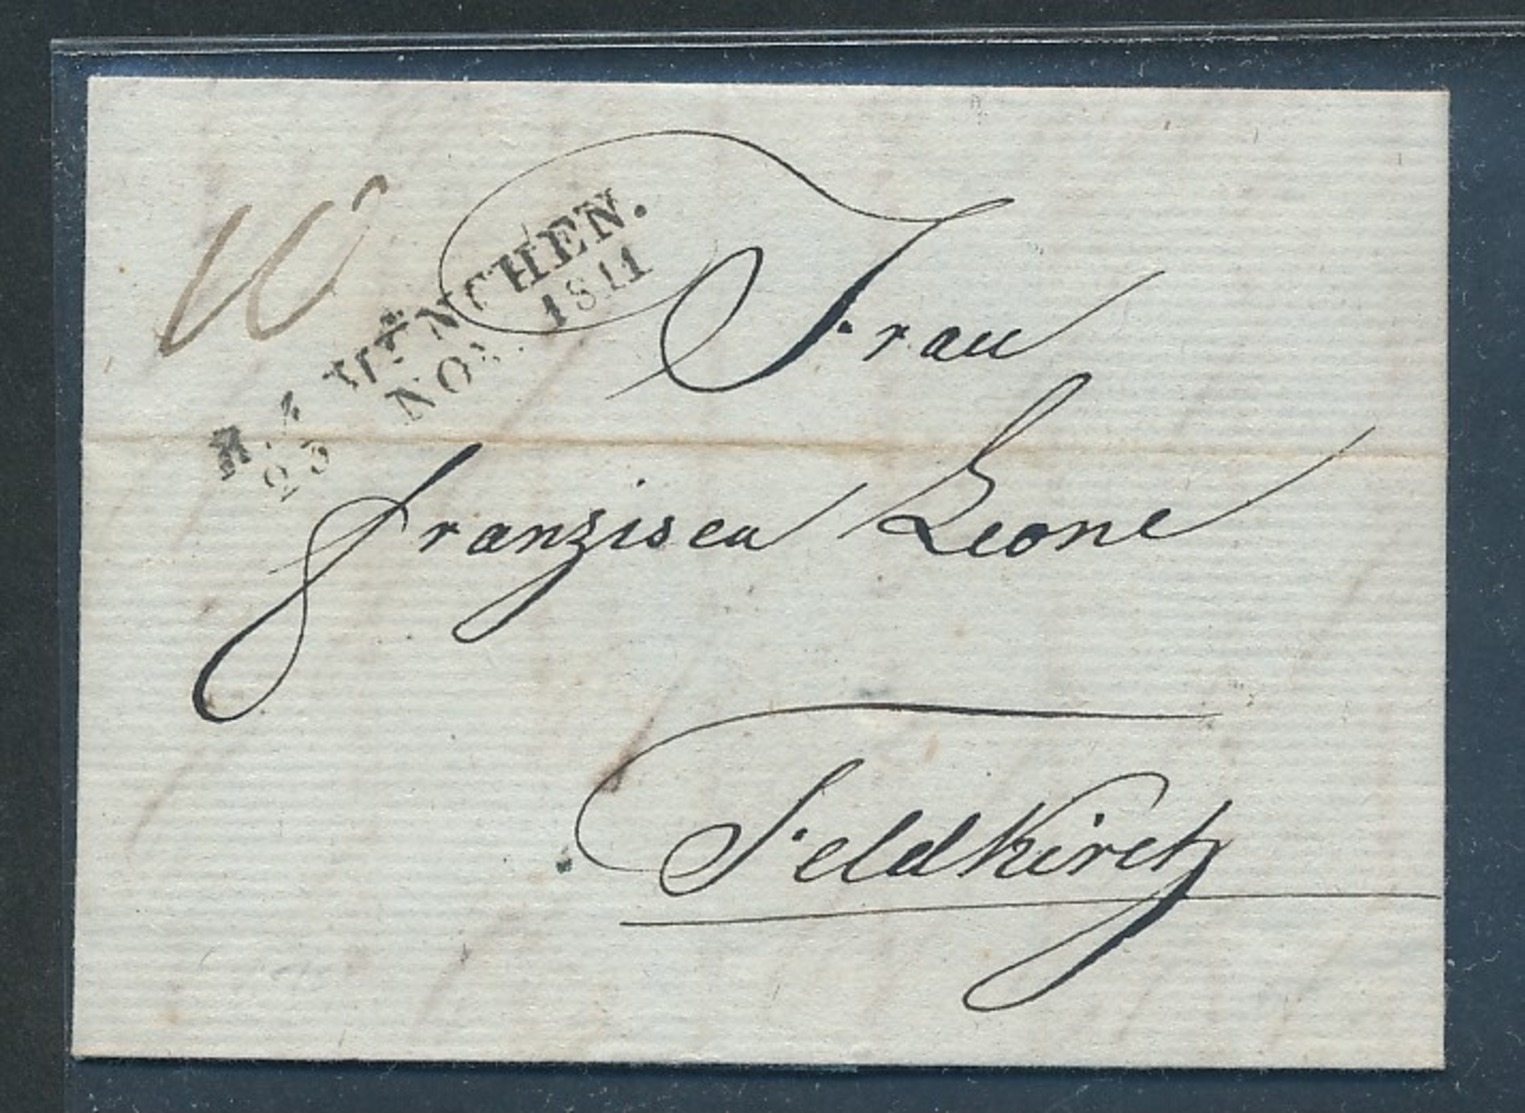 R. 4 MÜNCHEN.
25 NOV. 1811
Frau
Franzisca Leone
Feldkirch